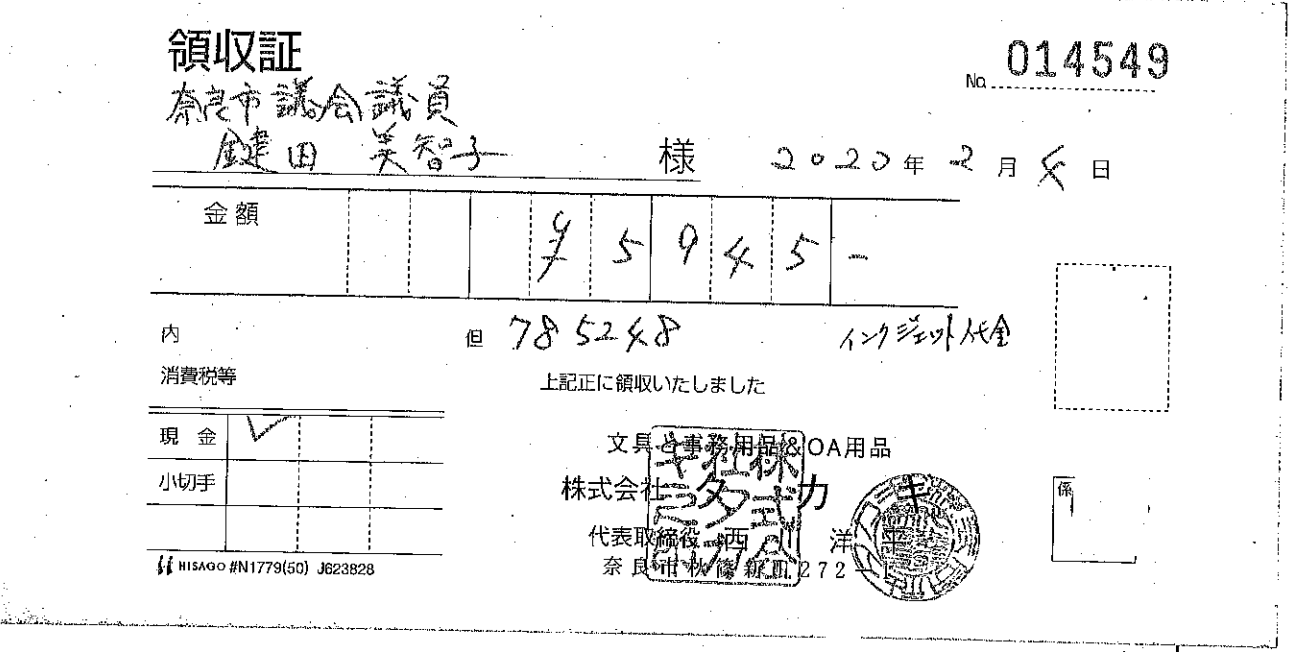 領収証
No. 014549
奈良市議会議員
鍵田 美智子 様
2020年 2月 4日
金額 ¥5945-
内
但 785248 インクジェット代金
消費税等
上記正に領収いたしました
現金 ✓
小切手
文具と事務用品&OA用品
株式会社タカキ
代表取締役 西川 洋平
奈良市秋篠新町272-
係
HISAGO #N1779(50) J623828